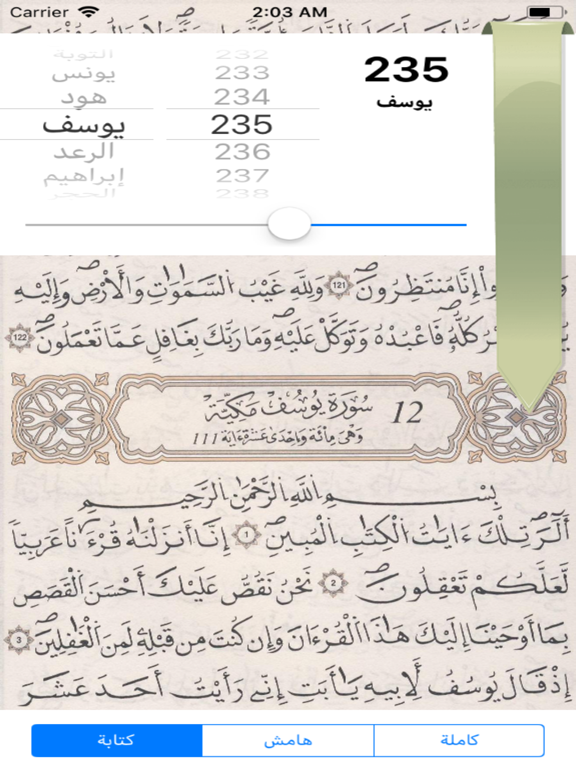 Carrier 2:03 AM
التوبة 232
يونس 233
هود 234
يوسف 235
الرعد 236
إبراهيم 237
الحجر 238
235
يوسف
وا۟ إِنَّا مُنتَظِرُونَ 121 وَلِلَّهِ غَيْبُ السَّمَٰوَٰتِ وَالْأَرْضِ وَإِلَيْهِ
كُلُّهُۥ فَاعْبُدْهُ وَتَوَكَّلْ عَلَيْهِ وَمَا رَبُّكَ بِغَٰفِلٍ عَمَّا تَعْمَلُونَ 122
12 سُورَةُ يُوسُفَ مَكِّيَّة
وَهْىَ مِائَة وَإِحْدَىٰ عَشْرَةَ ءَايَة 111
بِسْمِ اللَّهِ الرَّحْمَٰنِ الرَّحِيمِ
أَلَٓر تِلْكَ ءَايَٰتُ الْكِتَٰبِ الْمُبِينِ 1 إِنَّا أَنزَلْنَٰهُ قُرْءَٰناً عَرَبِيّاً
لَّعَلَّكُمْ تَعْقِلُونَ 2 نَحْنُ نَقُصُّ عَلَيْكَ أَحْسَنَ الْقَصَصِ
بِمَا أَوْحَيْنَا إِلَيْكَ هَٰذَا الْقُرْءَانَ وَإِن كُنتَ مِن قَبْلِهِۦ لَمِنَ الْغَٰفِلِينَ 3
إِذْ قَالَ يُوسُفُ لِأَبِيهِ يَٰأَبَتِ إِنِّي رَأَيْتُ أَحَدَ عَشَرَ
كتابة هامش كاملة